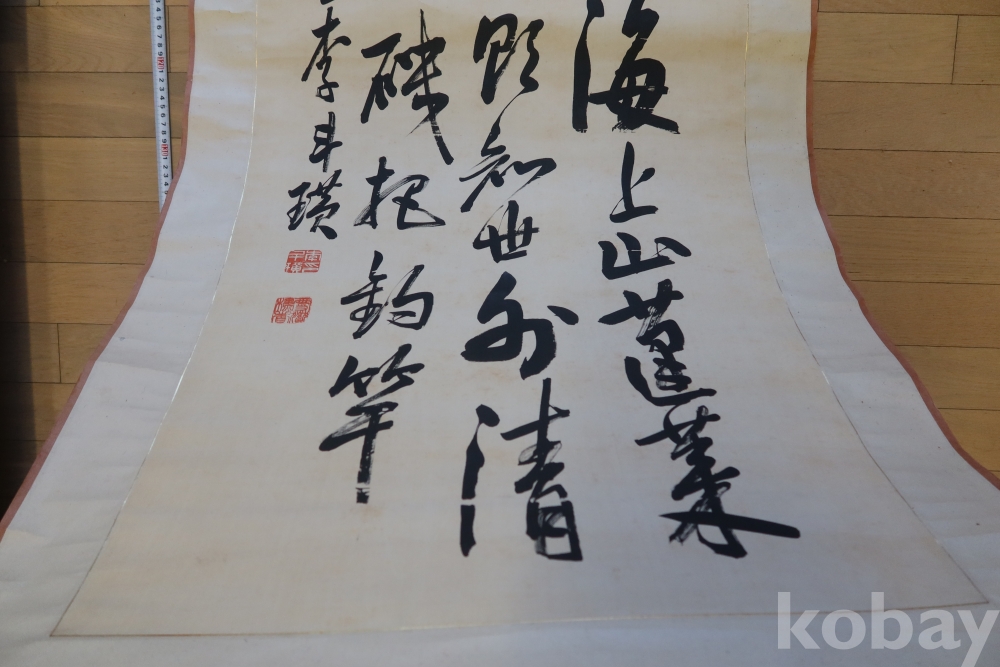 海上山蓬萊
顆知世外清
磯把釣竿
李斗璜
kobay